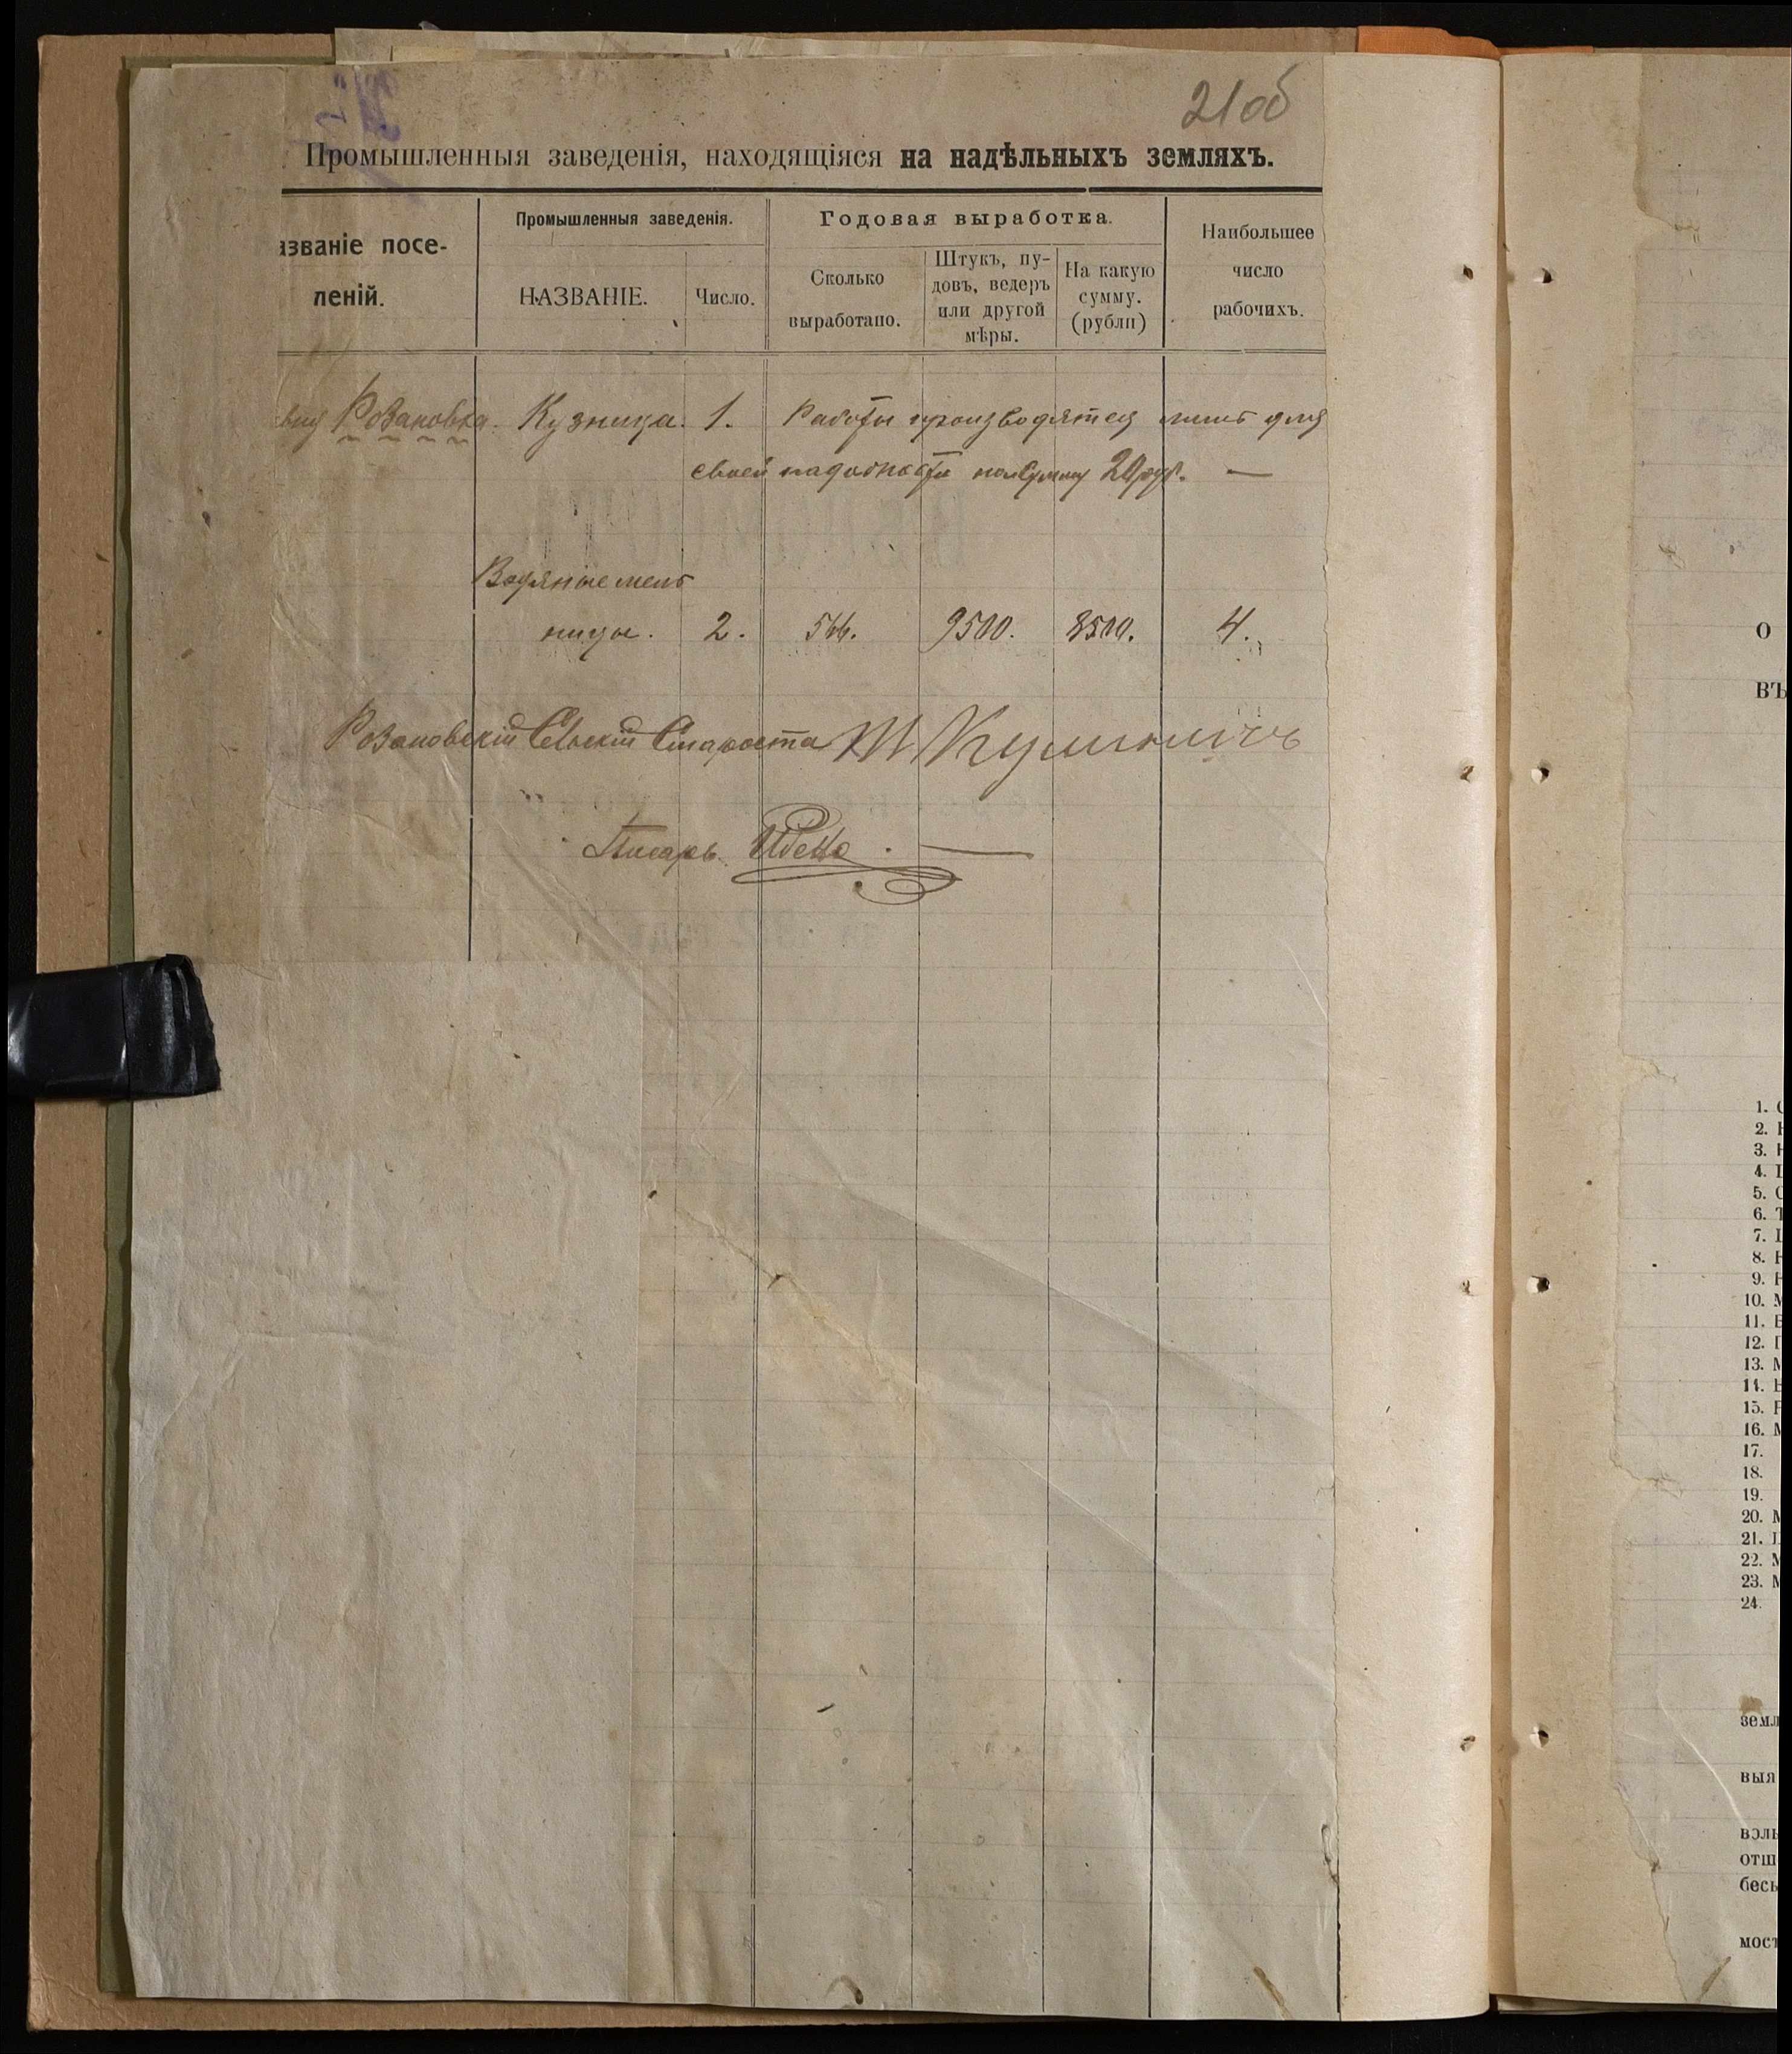 21об
Промышленныя заведенія, находящіяся на надѣльныхъ земляхъ.
азваніе посе-
леній.
Промышленныя заведенія.
НАЗВАНІЕ.
Число.
Годовая выработка.
Сколько
выработано.
Штукъ, пу-
довъ, ведеръ
или другой
мѣры.
На какую
сумму.
(рубли)
Наибольшее
число
рабочихъ.
Розановка. Кузница. 1. Работы производятся лишь для
своей надобности на сумму 20 руб. —
Водяные мель
ницы. 2. 9500. 8500. 4.
Розановскій Сельскій Староста
Писарь
о
въ
1.
2.
3.
4.
5.
6.
7.
8.
9.
10.
11.
12.
13.
14.
15.
16.
17.
18.
19.
20.
21.
22.
23.
24.
земл
выя
отш
мост